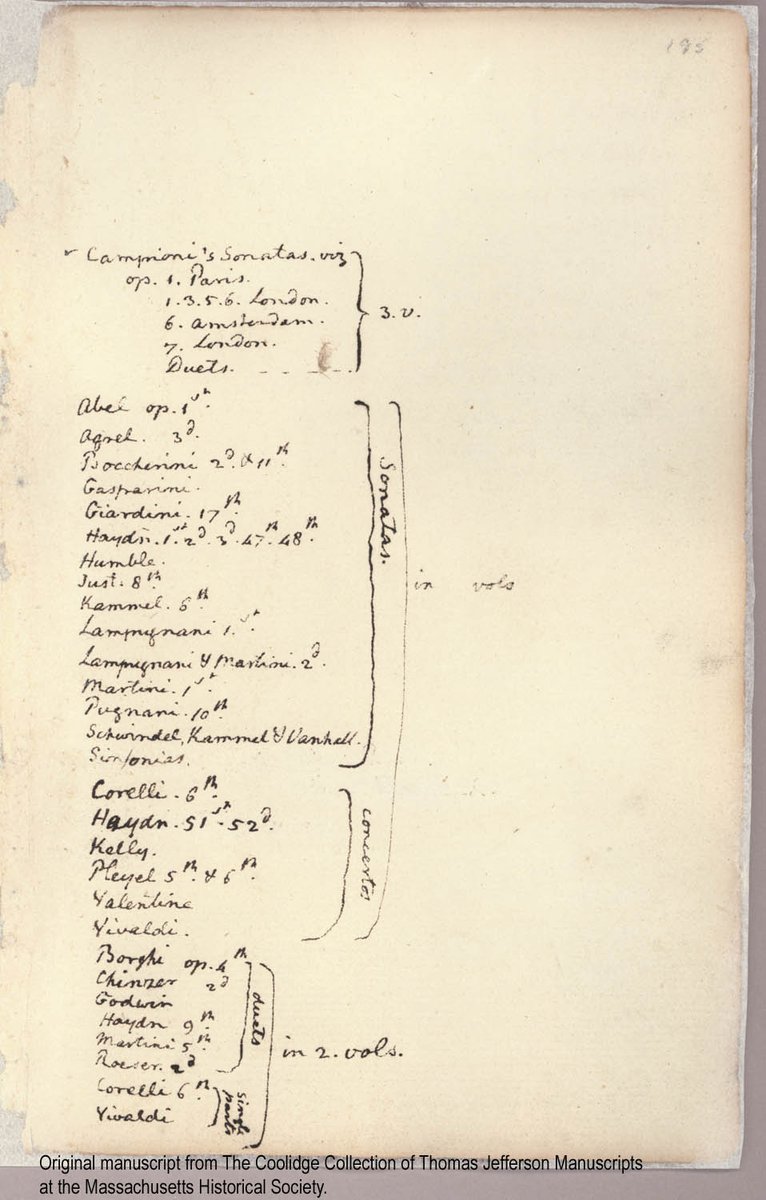 195
Camprioni's Sonatas. viz
op. 1. Paris.
1. 3. 5. 6. London.
6. Amsterdam.
7. London.
Duets.
3. v.
Abel op. 1st.
Agrel. 3d.
Boccherini 2d. & 11th.
Gasparini.
Giardini. 17th.
Haydn. 1st. 2d. 3d. 47th. 48th.
Humble.
Just. 8th.
Kammel. 6th.
Lampugnani 1.st.
Lampugnani & Martini. 2d.
Martini. 1st.
Pugnani. 10th.
Schwindel, Kammel & Vanhall.
Sinfonias.
Sonatas.
Corelli. 6th.
Haydn. 51st. 52d.
Kelly.
Pleyel 5th. & 6th.
Valentine
Vivaldi.
concertos
in vols
Borghi op. 4th
Chinzer 2d
Godwin
Haydn 9th
Martini 5th.
Roeser. 2d
duets
Corelli 6.th
Vivaldi
single parts
in 2. vols.
Original manuscript from The Coolidge Collection of Thomas Jefferson Manuscripts
at the Massachusetts Historical Society.